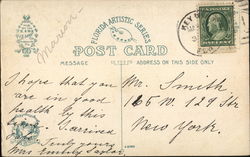 FLORIDA ARTISTIC SERIES
POST CARD
MESSAGE
ADDRESS ON THIS SIDE ONLY
Marion
I hope that you
are in good
health by this
I arrived
Truly yours
Mrs Emily Taylor
Mr. Smith
165 W. 129 Str
New York.
KEY